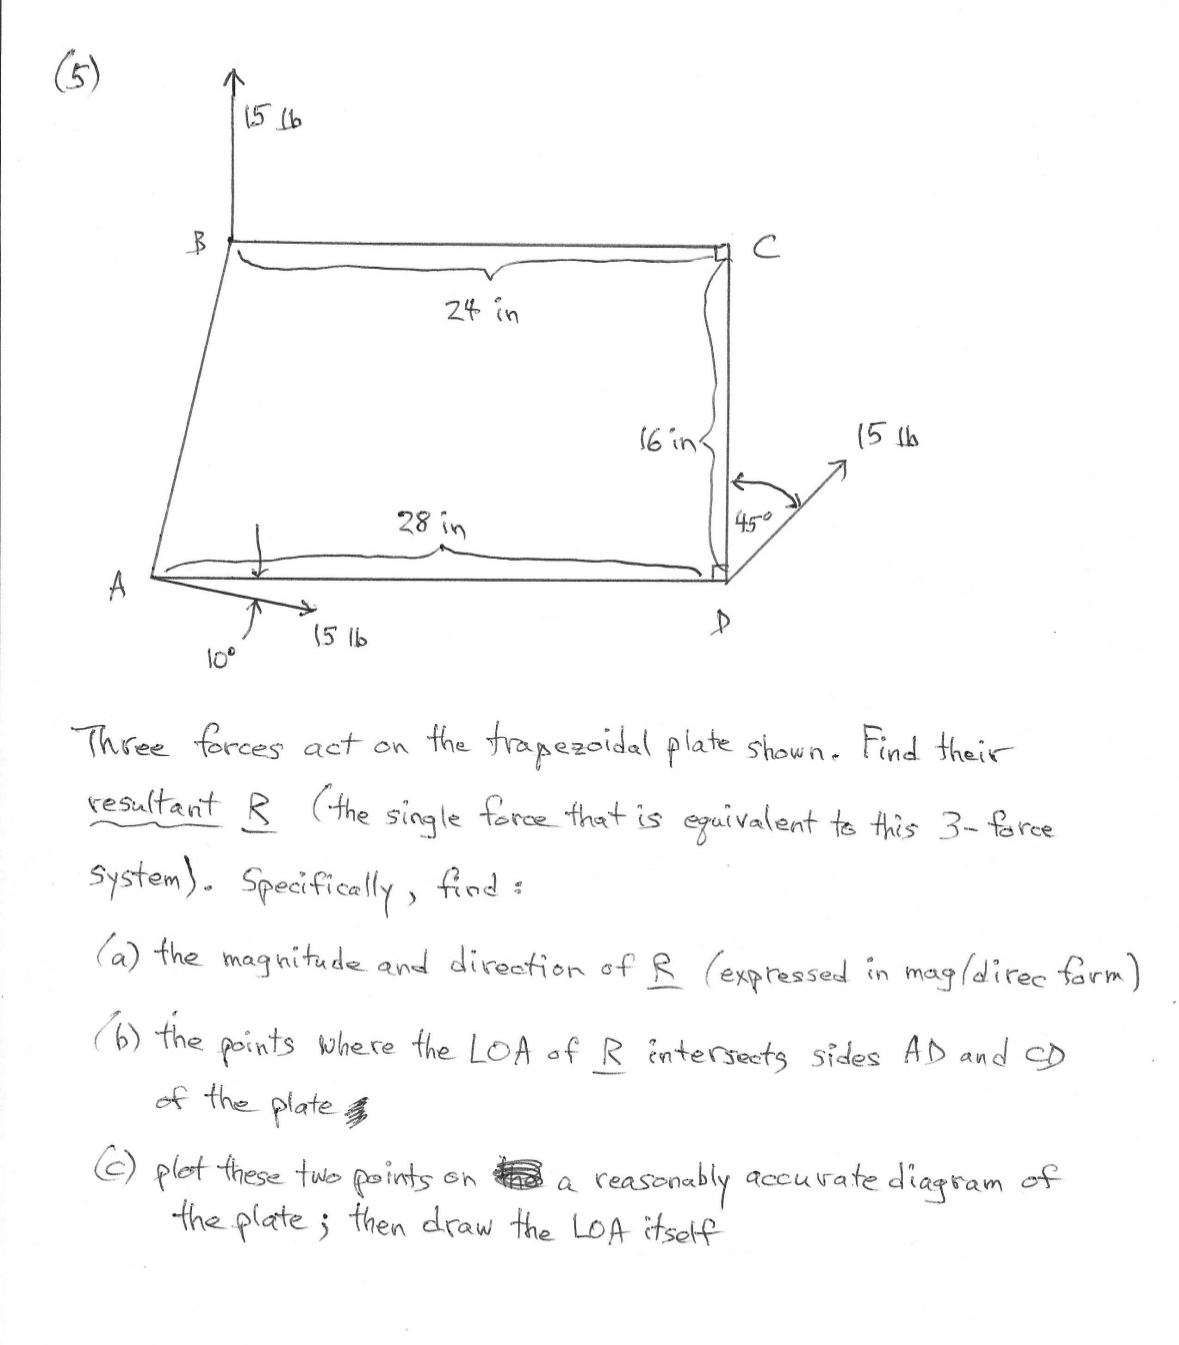 (5)
15 lb
B
C
24 in
16 in
15 lb
45°
28 in
A
D
15 lb
10°
Three forces act on the trapezoidal plate shown. Find their
resultant R (the single force that is equivalent to this 3-force
system). Specifically, find:
(a) the magnitude and direction of R (expressed in mag/direc form)
(b) the points where the LOA of R intersects sides AD and CD
of the plate
(c) plot these two points on a reasonably accurate diagram of
the plate; then draw the LOA itself